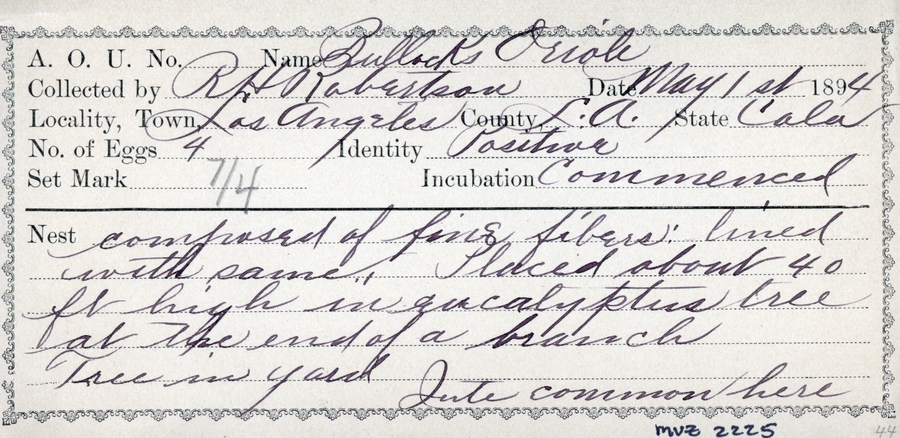 A. O. U. No. Name Bullocks Oriole
Collected by R H Robertson Date May 1 st 1894
Locality, Town, Los Angeles County, L. A. State Cala
No. of Eggs 4 Identity Positive
Set Mark 7/4 Incubation Commenced
Nest composed of fine fibers: lined
with same; Placed about 40
ft high in eucalyptus tree
at the end of a branch
Tree in yard
Jute common here
MVZ 2225
44